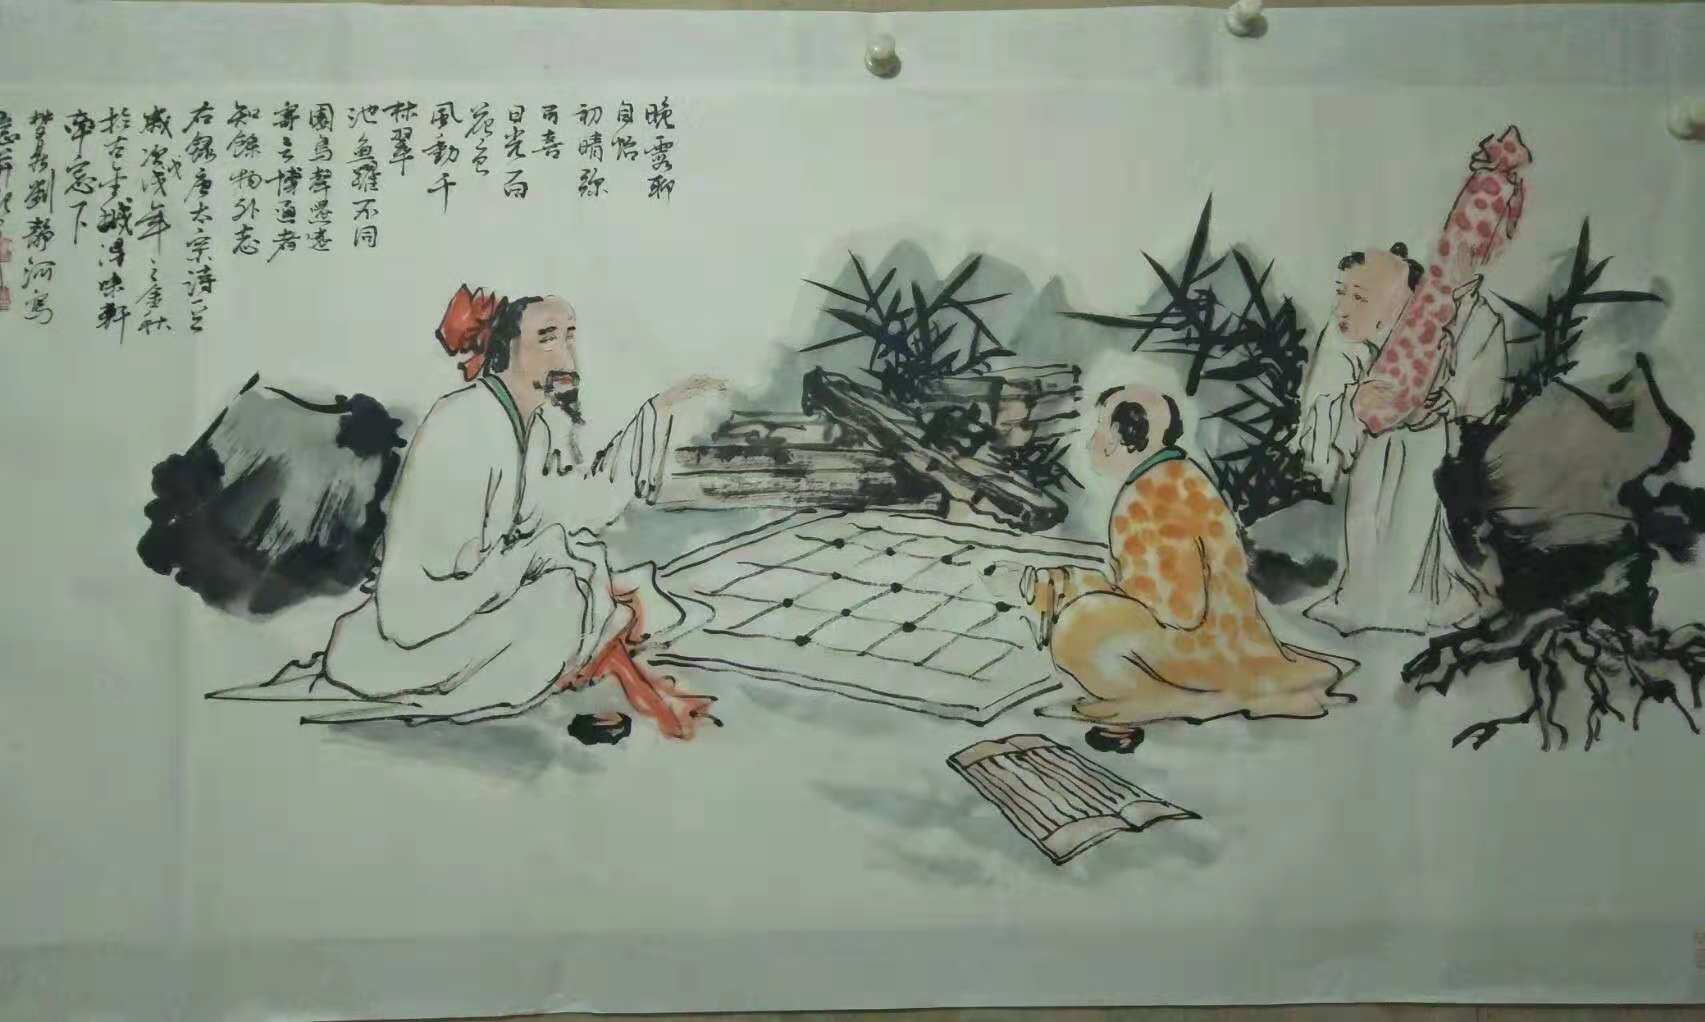 晚霞聊
自怡
初晴弥
可喜
日光百
花色
風動千
林翠
池魚躍不同
園鳥聲還異
寄言博通者
知餘物外志
右錄唐太宗詩一首
歲次戊戌年之金秋
於古金城得味軒
南窓下
劉靜河寫